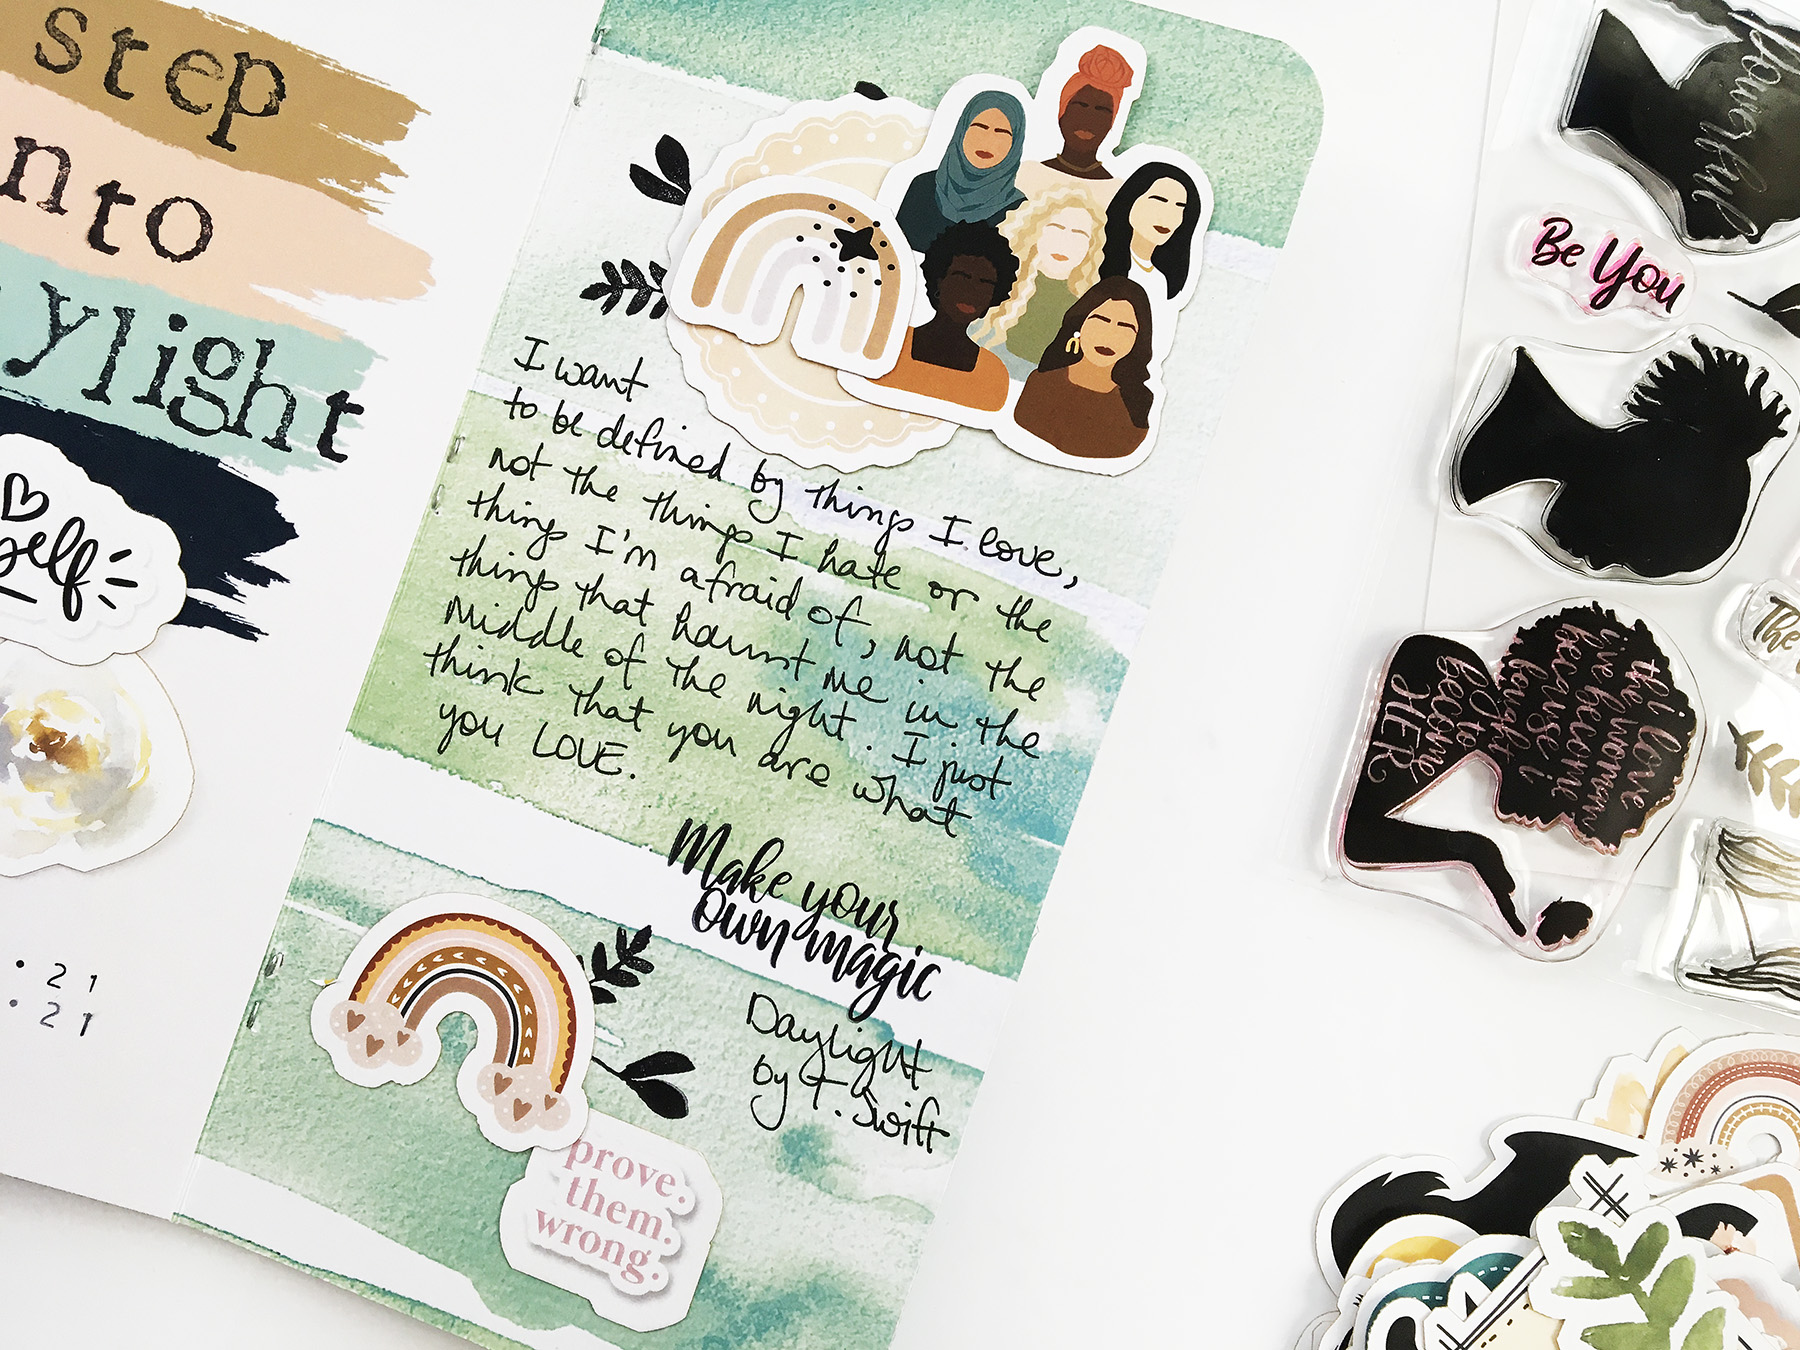 step
nto
ylight
self
21
21
I want
to be defined by things I love,
not the things I hate or the
things I'm afraid of, not the
things that haunt me in the
Middle of the night. I just
think that you are what
you LOVE.
Make your
own magic
Daylight
by T. Swift
prove.
them.
wrong.
Powerful
Be You
The
the love
woman
i've become
because i
fought
to
become
HER